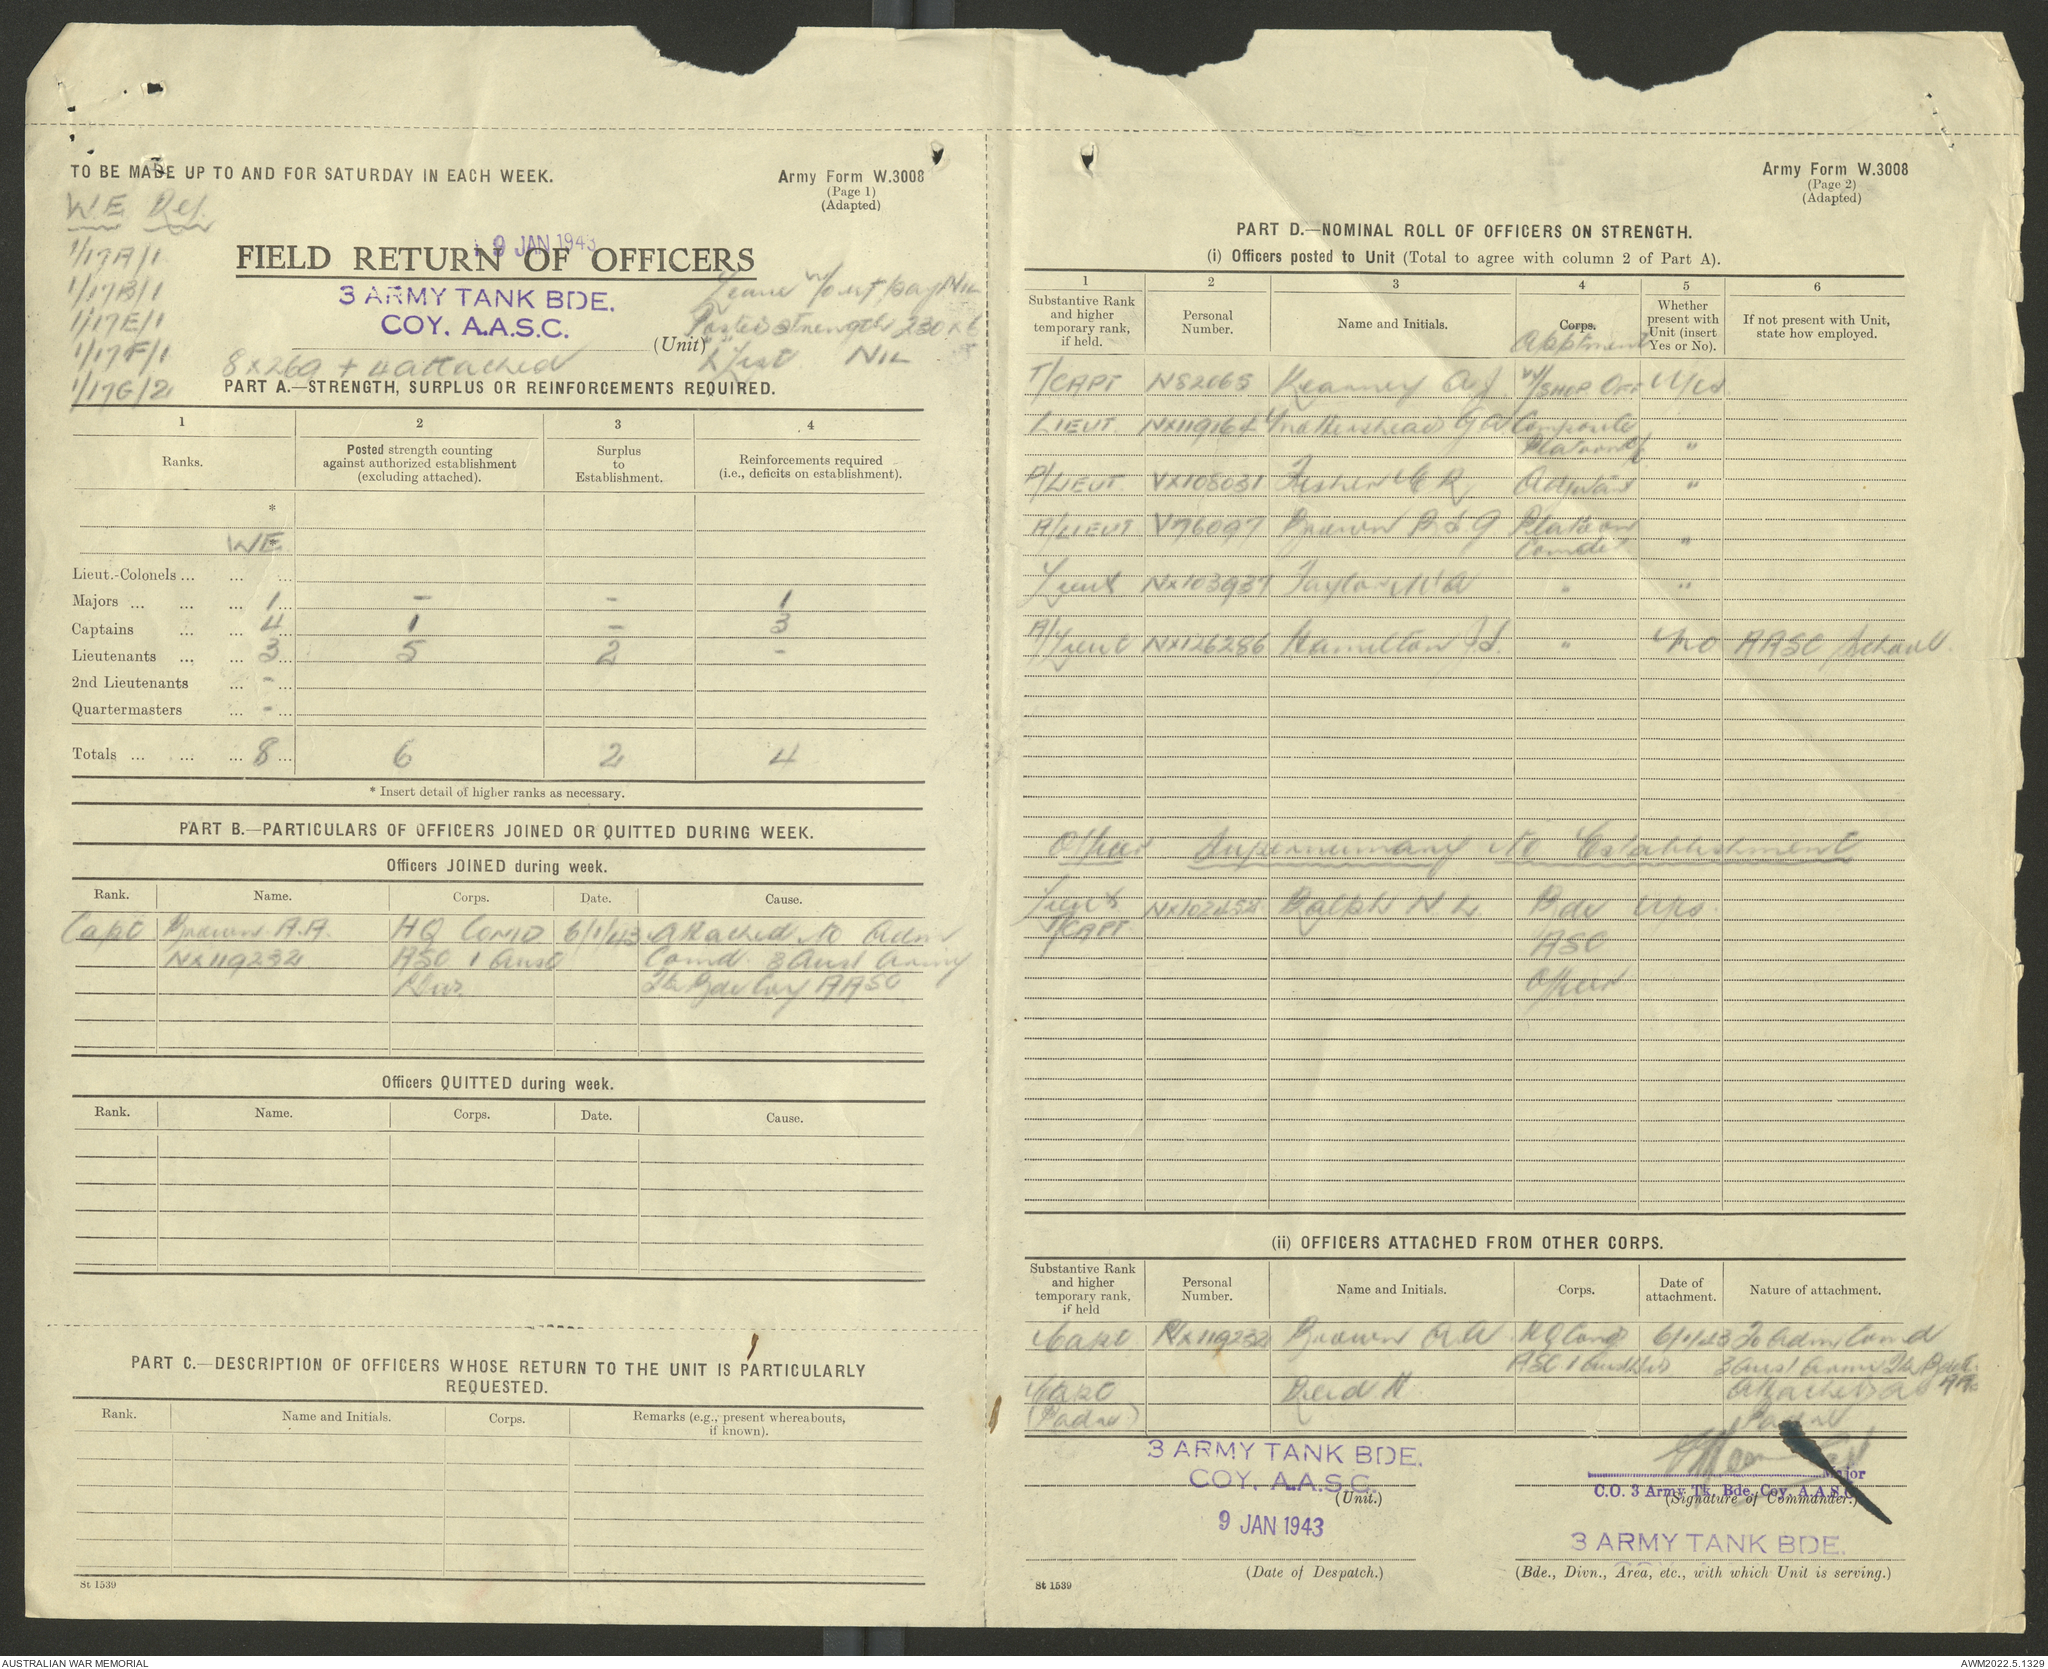 TO BE MADE UP TO AND FOR SATURDAY IN EACH WEEK.
Army Form W.3008
(Page 1)
(Adapted)
W.E. Ref.
1/17A/1
1/17B/1
1/17E/1
1/17F/1
1/17G/2
9 JAN 1943
FIELD RETURN OF OFFICERS
3 ARMY TANK BDE.
COY. A.A.S.C.
(Unit)
Leave w/out pay NIL
Posted strength 230 x 6
X List NIL
8 x 269 + 4 attached
PART A.—STRENGTH, SURPLUS OR REINFORCEMENTS REQUIRED.
1 2 3 4
Ranks.
Posted strength counting against authorized establishment (excluding attached).
Surplus to Establishment.
Reinforcements required (i.e., deficits on establishment).
*
WE
Lieut.-Colonels ... ... ...
Majors ... ... ... 1 - - 1
Captains ... ... 4 1 - 3
Lieutenants ... ... 3 5 2 -
2nd Lieutenants ... -
Quartermasters ... -
Totals ... ... ... 8 6 2 4
* Insert detail of higher ranks as necessary.
PART B.—PARTICULARS OF OFFICERS JOINED OR QUITTED DURING WEEK.
Officers JOINED during week.
Rank. Name. Corps. Date. Cause.
Capt Brown A.A. HQ Comd 6/1/43 Attached to Adm
NX119232 ASC 1 Aust Comd. 3 Aust Army
Div. Tk Bde Coy AASC
Officers QUITTED during week.
Rank. Name. Corps. Date. Cause.
PART C.—DESCRIPTION OF OFFICERS WHOSE RETURN TO THE UNIT IS PARTICULARLY
REQUESTED.
Rank. Name and Initials. Corps. Remarks (e.g., present whereabouts, if known).
St 1539
Army Form W.3008
(Page 2)
(Adapted)
PART D.—NOMINAL ROLL OF OFFICERS ON STRENGTH.
(i) Officers posted to Unit (Total to agree with column 2 of Part A).
1 2 3 4 5 6
Substantive Rank and higher temporary rank, if held.
Personal Number.
Name and Initials.
Corps.
Apptment
Whether present with Unit (insert Yes or No).
If not present with Unit, state how employed.
T/CAPT NS2065 Kearney A J W/SHOP OFF Yes
LIEUT. NX119164 G A Composite
Platoon "
LIEUT. VX108031 Fisher Adjutant "
A/LIEUT V76097 Brown Platoon
Comder "
Lieut NX103937 Taylor " "
A/Lieut NX126286 Hamilton " No AASC School.
Officer Supernumary to Establishment
Lieut NX102454 Ralph N. L. Bde Yes
T/CAPT ASC
Officer
(ii) OFFICERS ATTACHED FROM OTHER CORPS.
Substantive Rank and higher temporary rank, if held
Personal Number.
Name and Initials.
Corps.
Date of attachment.
Nature of attachment.
Capt NX119232 Brown A A HQ Comd 6/1/43 To Adm Comd
ASC 1 Aust Div 3 Aust Army Tk Bde
Capt Reid H. Attached as
(Padre) Padre
3 ARMY TANK BDE.
COY. A.A.S.C.
(Unit.)
9 JAN 1943
(Date of Despatch.)
Major
C.O. 3 Army Tk. Bde. Coy. A.A.S.C.
(Signature of Commander.)
3 ARMY TANK BDE.
(Bde., Divn., Area, etc., with which Unit is serving.)
St 1539
AUSTRALIAN WAR MEMORIAL
AWM2022.5.1329